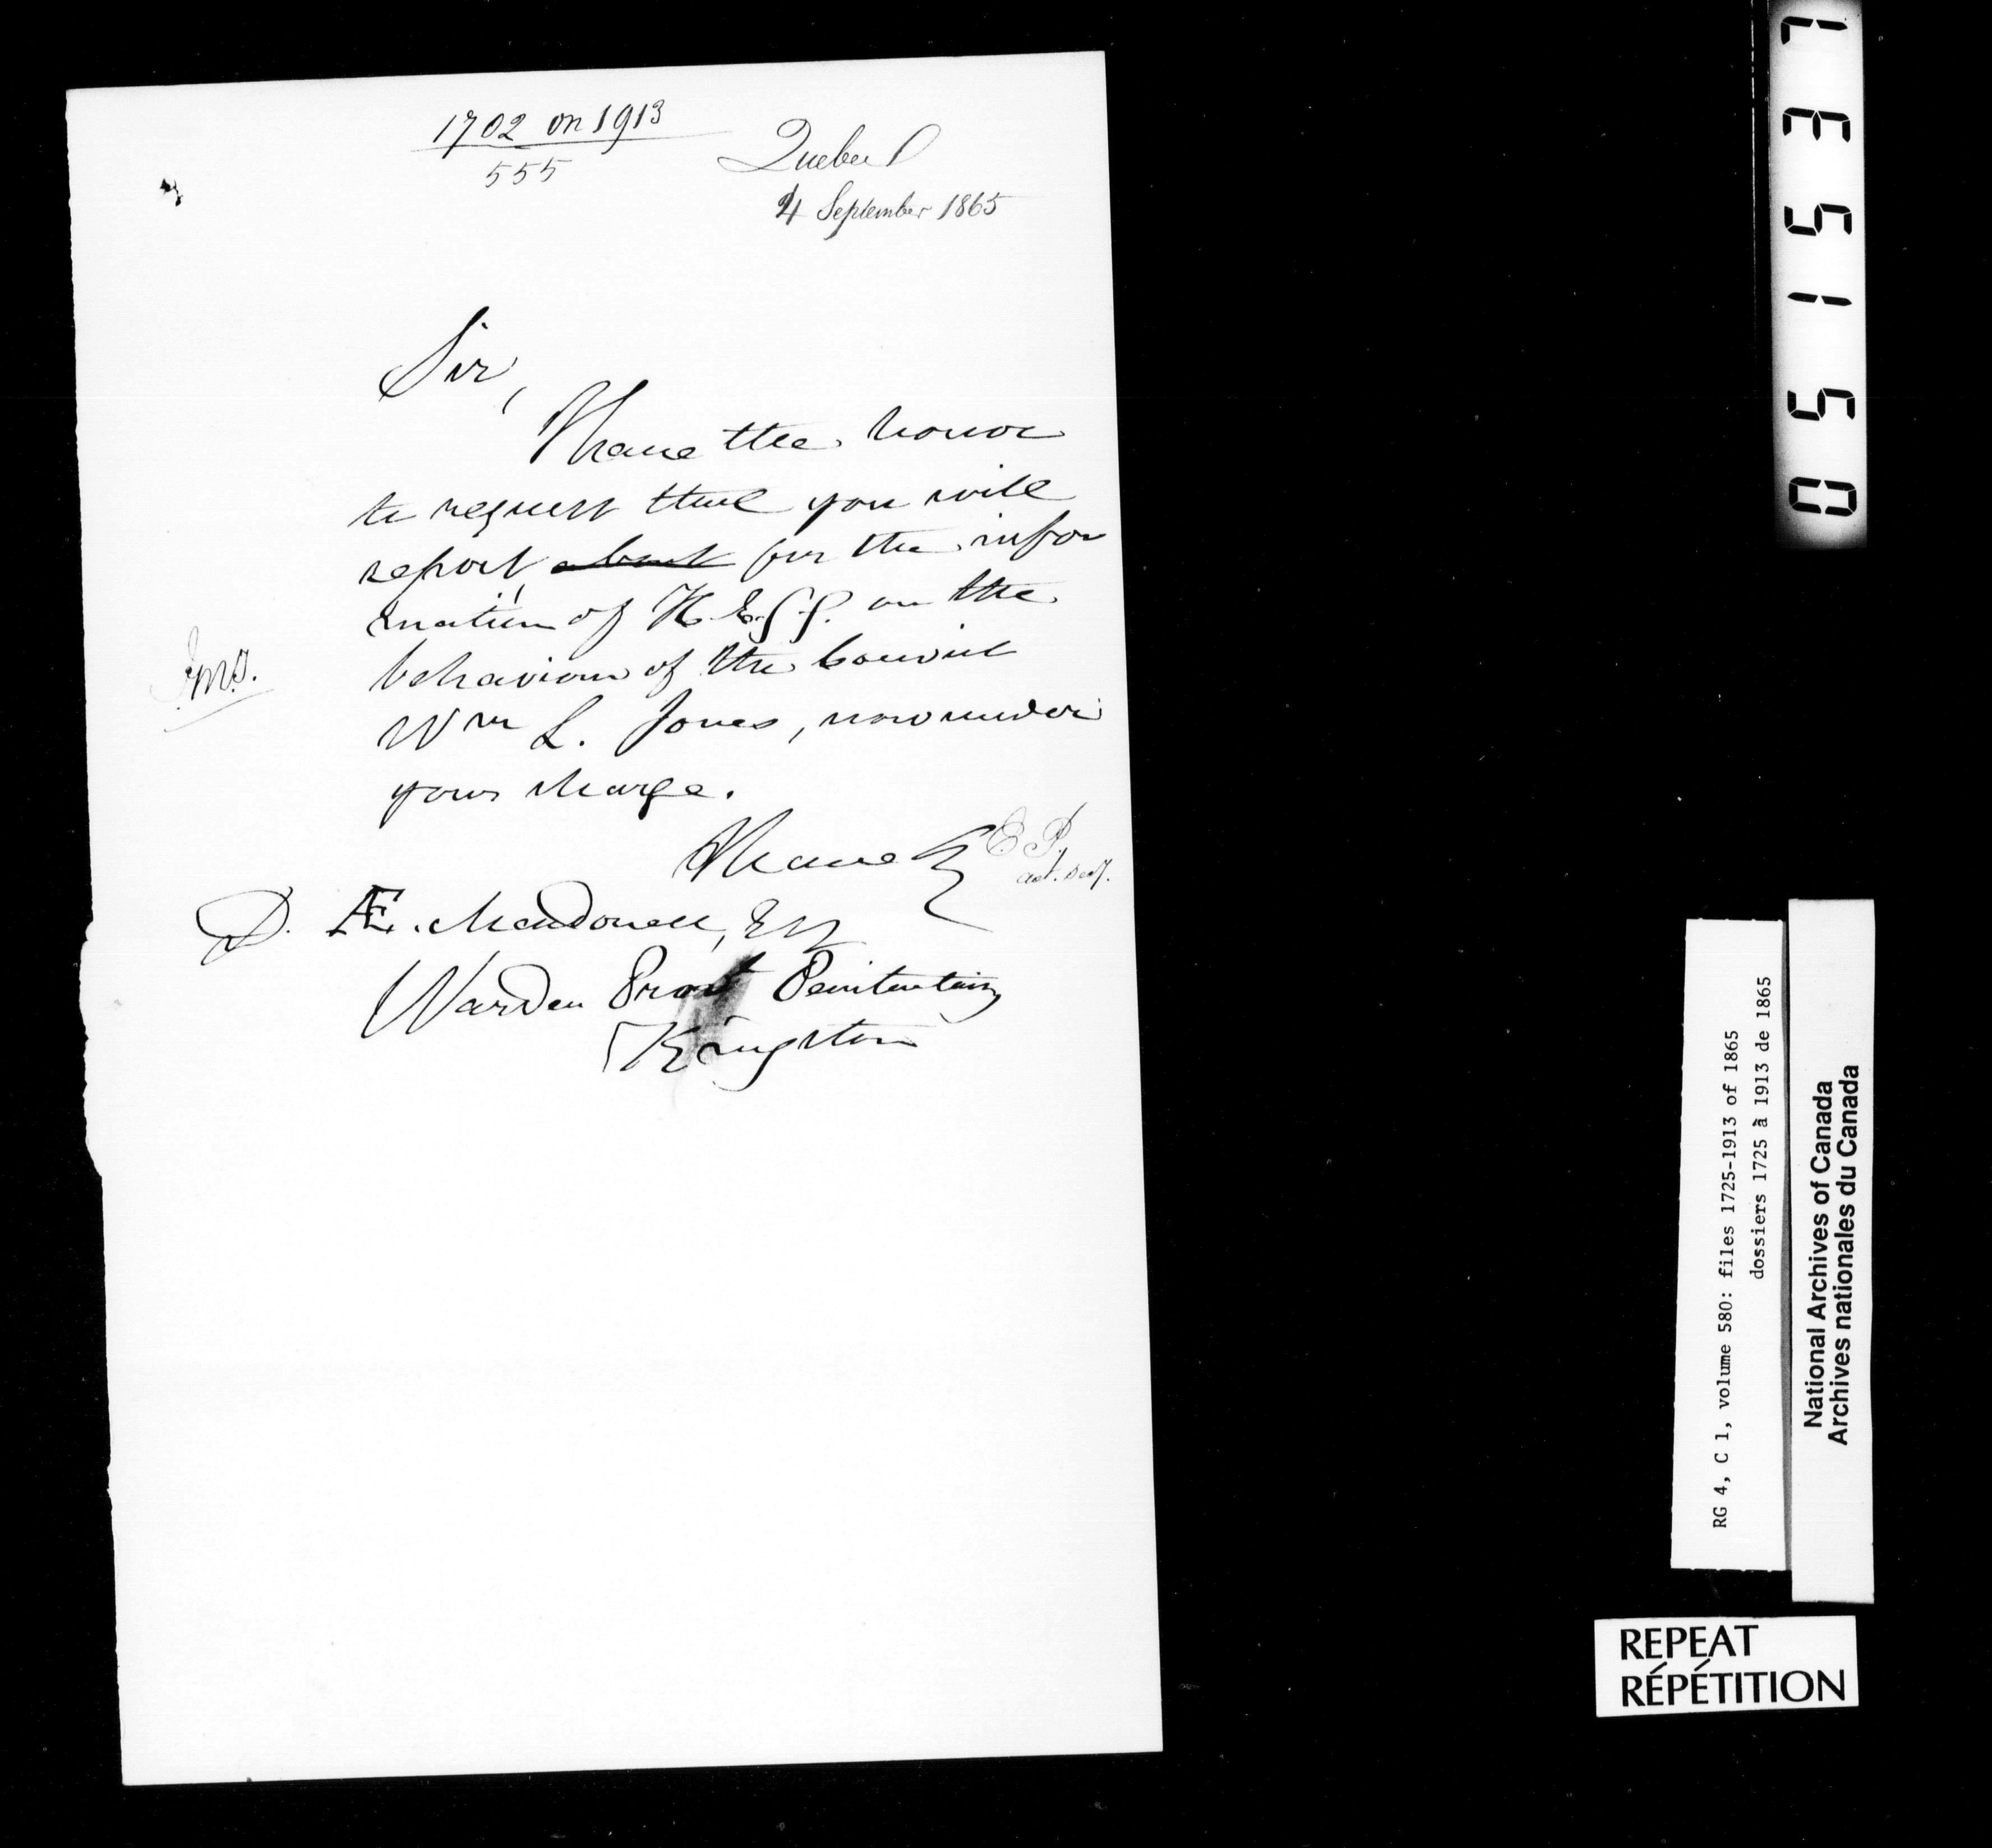 1702 on 1913
555
Quebec
4 September 1865
Sir,
I have the honor
to request that you will
report, about for the infor
mation of H.E.G.G. on the
behaviour of the Convict
Wm L. Jones, now under
your charge.
I have &
E. P.
act. secy.
D. Æ. Macdonell, Esq
Warden Provl Penitentiary
Kingston
051537
RG 4, C 1, volume 580: files 1725-1913 of 1865
dossiers 1725 à 1913 de 1865
National Archives of Canada
Archives nationales du Canada
REPEAT
RÉPÉTITION